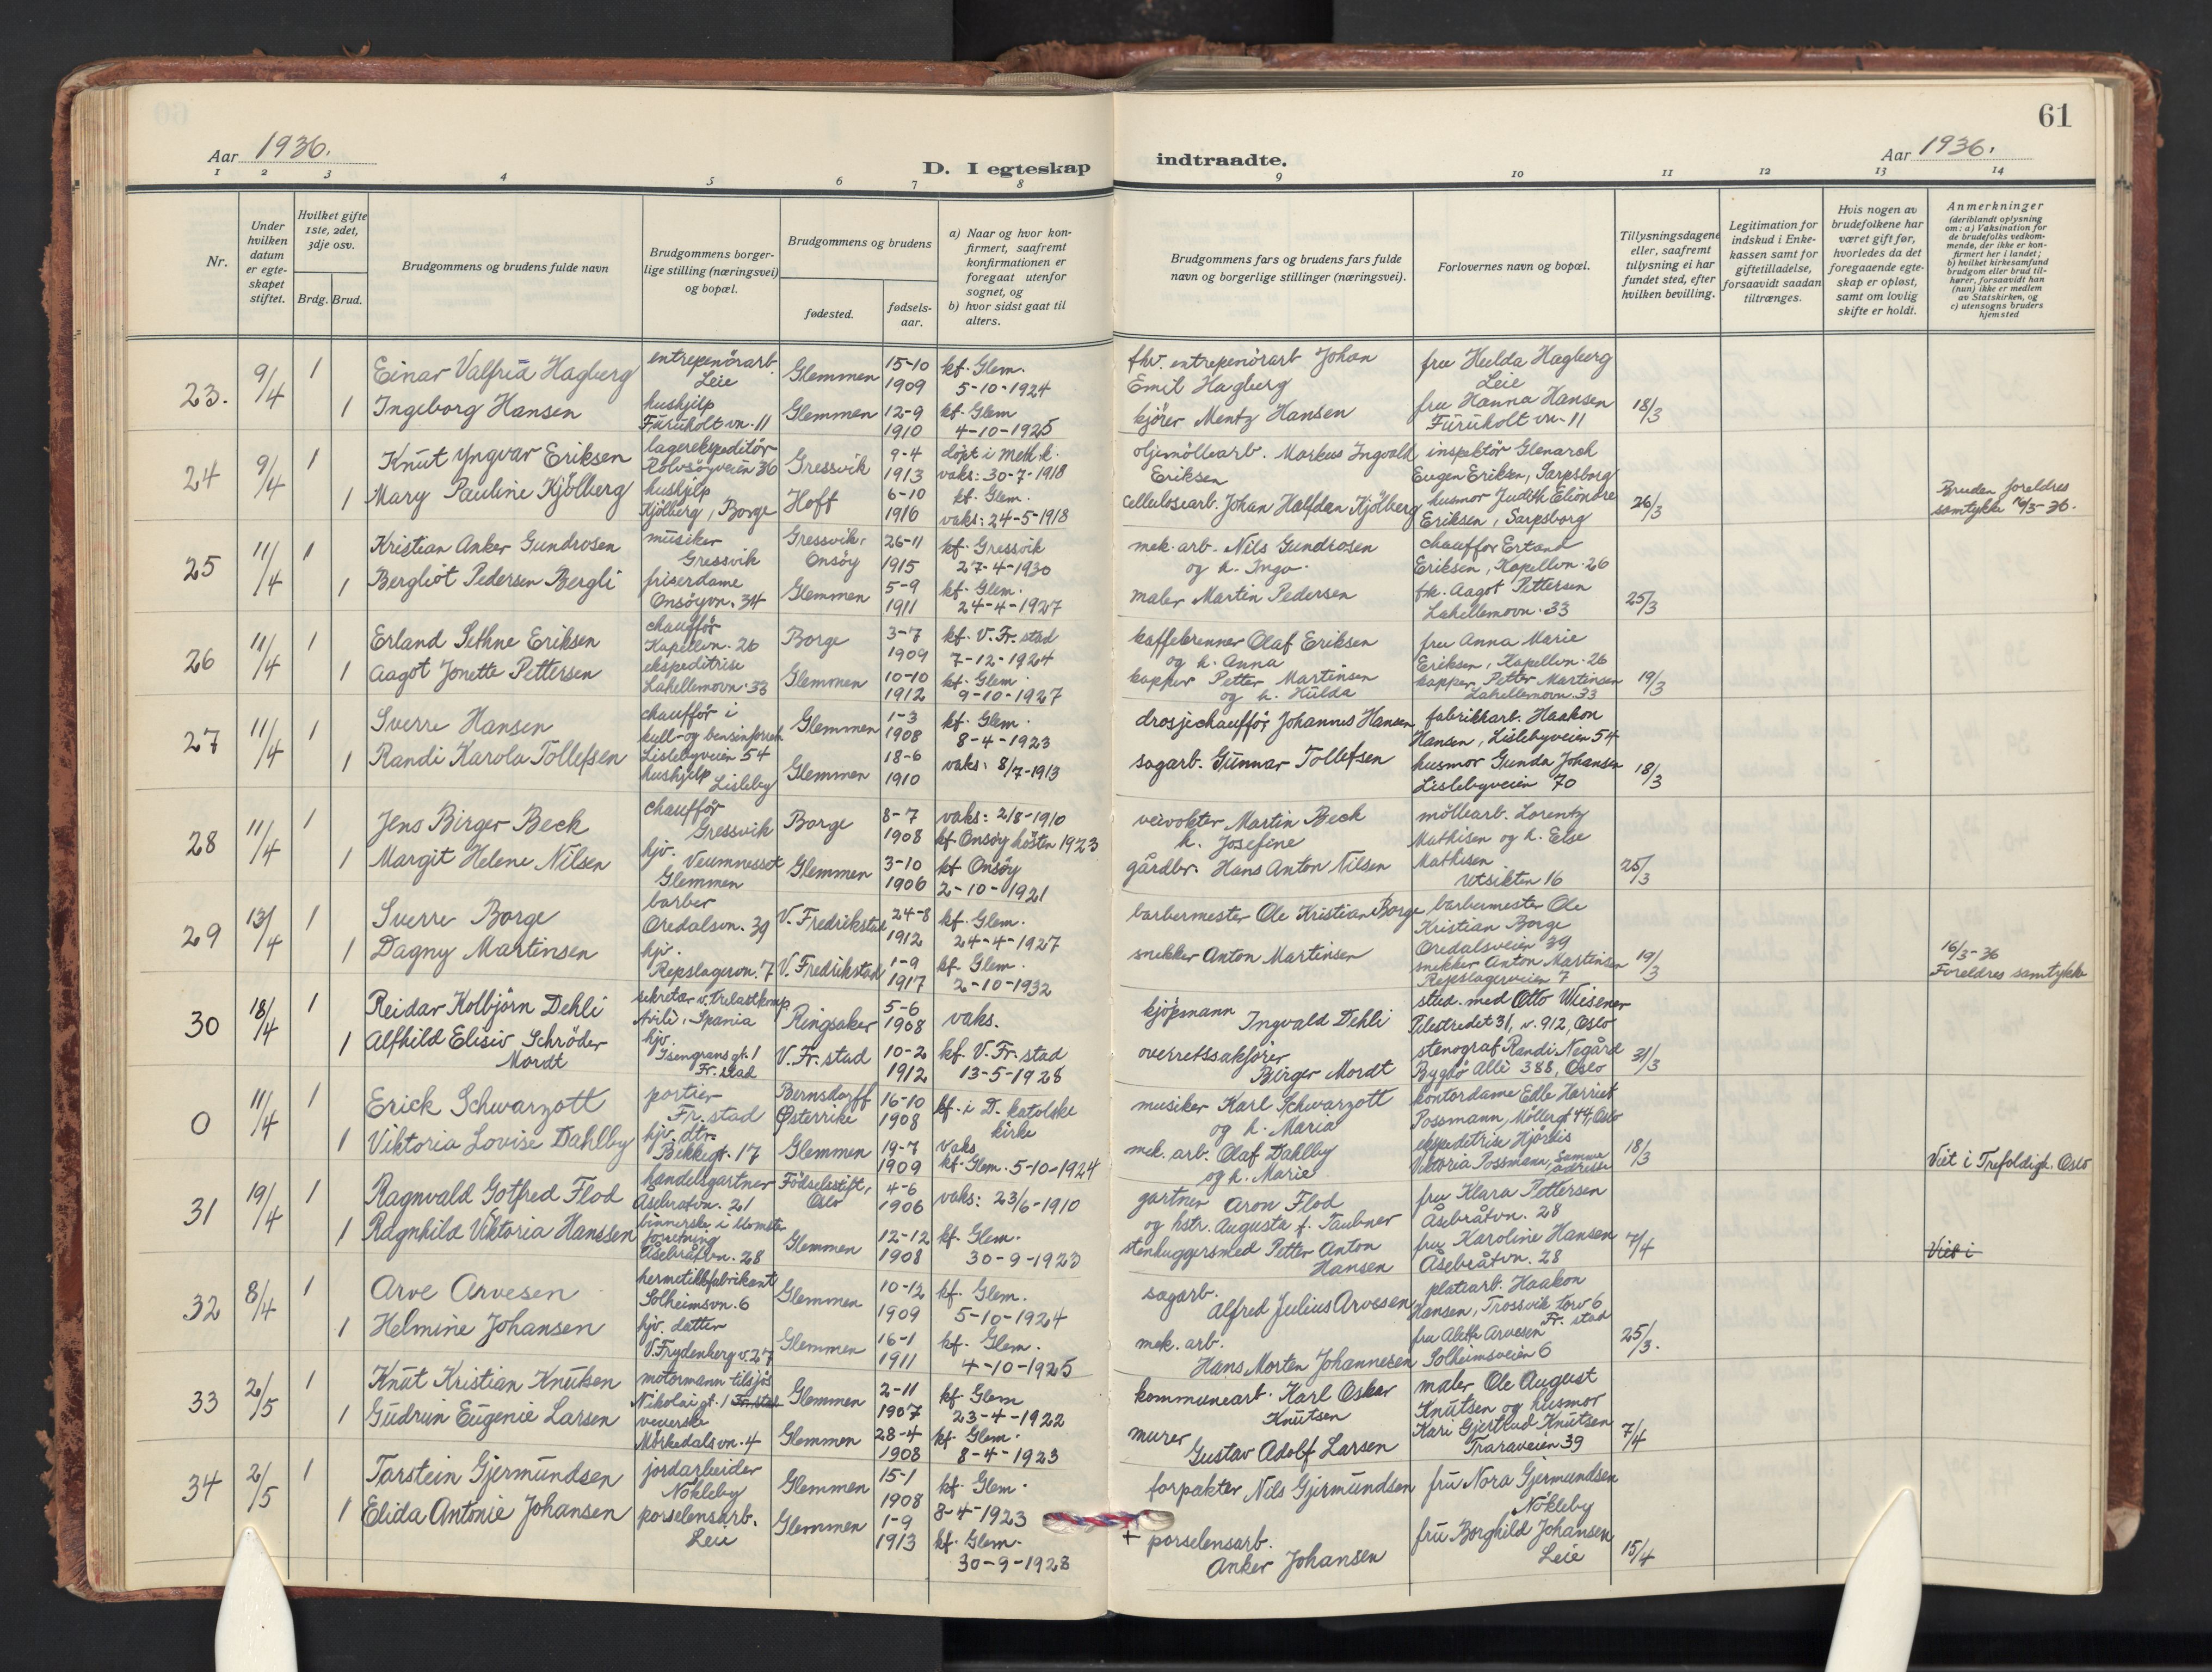 61
Aar 1936.
D. I egteskap indtraadte.
Aar 1936.
1 2 3 4 5 6 7 8 9 10 11 12 13 14
Nr.
Under hvilken datum er egteskapet stiftet.
Hvilket gifte 1ste, 2det, 3dje osv.
Brdg. Brud.
Brudgommens og brudens fulde navn
Brudgommens borgerlige stilling (næringsvei) og bopæl.
Brudgommens og brudens
fødested.
fødselsaar.
a) Naar og hvor konfirmert, saafremt konfirmationen er foregaat utenfor sognet, og
b) hvor sidst gaat til alters.
Brudgommens fars og brudens fars fulde navn og borgerlige stillinger (næringsvei).
Forlovernes navn og bopæl.
Tillysningsdagene eller, saafremt tillysning ei har fundet sted, efter hvilken bevilling.
Legitimation for indskud i Enkekassen samt for giftetilladelse, forsaavidt saadan tiltrænges.
Hvis nogen av brudefolkene har været gift før, hvorledes da det foregaaende egteskap er opløst, samt om lovlig skifte er holdt.
Anmerkninger
(deriblandt oplysning om: a) Vaksination for de brudefolks vedkommende, der ikke er konfirmert her i landet;
b) hvilket kirkesamfund brudgom eller brud tilhører, forsaavidt han (hun) ikke er medlem av Statskirken, og
c) utensogns bruders hjemsted
23. 9/4 1 Einar Valfrid Hagberg entrepenörarb. Leie Glemmen 15-10 1909 kf. Glem. 5-10-1924 fhv. entrepenörarb Johan Emil Hagberg fru Hulda Hagberg Leie
1 Ingeborg Hansen hushjelp Furuholt vn. 11 Glemmen 12-9 1910 kf. Glem 4-10-1925 kjörer Mentz Hansen fru Hanna Hansen Furuholt vn. 11 18/3
24 9/4 1 Knut Yngvar Eriksen lagerekspeditör Rolvsöyveien 36 Gressvik 9-4 1913 döpt i meth.k. vaks: 30-7-1918 oljemöllearb. Markus Ingvald Eriksen inspektör Glenarch Eugen Eriksen, Sarpsborg
1 Mary Pauline Kjölberg hushjelp Kjölberg, Borge Hoft 6-10 1916 kf. Glem. vaks: 24-5-1918 cellulosearb. Johan Halfdan Kjölberg husmor Judith Elionore Eriksen, Sarpsborg 26/3 Bruden foreldres samtykke 16/3-36.
25 11/4 1 Kristian Anker Gundrosen musiker Gressvik Gressvik, Onsöy 26-11 1915 kf. Gressvik 27-4-1930 mek. arb. Nils Gundrosen og h. Inga. chauffor Erland Eriksen, Kapellvn. 26
1 Bergliot Pedersen Bergli friserdame Onsöyvn. 34 Glemmen 5-9 1911 kf. Glem. 24-4-1927 maler Martin Pedersen frk. Aagot Pettersen Lahellemovn. 33 25/3
26 11/4 1 Erland Sethne Eriksen chaufför Kapellvn. 26 Borge 3-7 1909 kf. V. Fr. stad 7-12-1924 kaffebrenner Olaf Eriksen og h. Anna fru Anna Marie Eriksen, Kapellvn. 26
1 Aagot Jonette Pettersen ekspeditrise Lahellemovn. 33 Glemmen 10-10 1912 kf. Glem. 9-10-1927 kapper Petter Martinsen og h. Hulda kapper Petter Martinsen Lahellemovn. 33 19/3
27 11/4 1 Sverre Hansen chaufför i kull- og bensinforretn Lislebyveien 54 Glemmen 1-3 1908 kf. Glem. 8-4-1923 drosjechaufför Johannes Hansen fabrikkarb. Haakon Hansen, Lislebyveien 54
1 Randi Karola Tollefsen hushjelp Lisleby Glemmen 18-6 1910 vaks: 8/7-1913 sagarb. Gunnar Tollefsen husmor Gunda Johansen Lislebyveien 70 18/3
28 11/4 1 Jens Birger Beck chaufför Gressvik Borge 8-7 1908 vaks: 2/8-1910 kf Onsöy hösten 1923 veivokter Martin Beck h. Josefine möllearb. Lorentz Mathisen og h. Else Mathisen Utsikten 16
1 Margit Helene Nilsen hjv. Veumnesset Glemmen Glemmen 3-10 1906 kf Onsöy 2-10-1921 gårdbr. Hans Anton Nilsen 25/3
29 13/4 1 Sverre Borge barber Oredalsvn. 39 V. Fredrikstad 24-8 1912 kf. Glem. 24-4-1927 barbermester Ole Kristian Borge barbermester Ole Kristian Borge Oredalsveien 39
1 Dagny Martinsen hjv. Repslagervn. 7 V. Fredrikstad 1-9 1917 kf. Glem. 2-10-1932 snekker Anton Martinsen snekker Anton Martinsen Repslagerveien 7 19/3 16/3-36 Foreldres samtykke
30 18/4 1 Reidar Kolbjörn Dehli sekretær v. Trelastkomp. Avilè, Spania Ringsaker 5-6 1908 vaks. kjöpmann Ingvald Dehli stud. med Otto Wiesener Pilestredet 31, v. 912, Oslo
1 Alfhild Elisiv Schröder Mordt hjv. Isengrans gt. 1 Fr. stad V. Fr. stad 10-2 1912 kf. V. Fr. stad 13-5-1928 overrettssakförer Birger Mordt stenograf Randi Negård Bygdö Allé 388, Oslo 31/3
0 11/4 1 Erick Schwarzott portier Fr. stad Bernsdorff Østerrike 16-10 1908 kf. i D. katolske kirke musiker Karl Schwarzott og h. Maria kontordame Edle Harriet Possmann, Möllergt 44, Oslo
1 Viktoria Lovise Dahlby hjv. dtr. Bekkegt. 17 Glemmen 19-7 1909 vaks kf. Glem. 5-10-1924 mek. arb. Olaf Dahlby og h. Marie ekspeditrise Hjördis Viktoria Possmann, Samme adresse 18/3 Viet i Trefoldigh. Oslo
31 19/4 1 Ragnvald Gotfred Flod handelsgartner Åsebråtvn. 21 Födselsstift, Oslo 4-6 1906 vaks: 23/6-1910 gartner Aron Flod og hstr. Augusta f. Taubner fru Klara Pettersen Åsebråtvn. 28
1 Ragnhild Viktoria Hanssen binnerske i blomsterforretning Åsebråtvn. 28 Glemmen 12-12 1908 kf. Glem. 30-9-1923 stenhuggersmed Petter Anton Hansen fru Karoline Hansen Åsebråtvn. 28 7/4 Viet i
32 8/4 1 Arve Arvesen hermetikkfabrikant Solheimsvn. 6 Glemmen 10-12 1909 kf. Glem. 5-10-1924 sagarb. Alfred Julius Arvesen platearb. Haakon Hansen, Trossvik torv 6 Fr. stad
1 Helmine Johansen hjv. datter V. Frydenberg v. 27 Glemmen 16-1 1911 kf. Glem. 4-10-1925 mek. arb. Hans Morten Johannesen fru Alette Arvesen Solheimsveien 6 25/3.
33 2/5 1 Knut Kristian Knutsen motormann tilsjös Nikolai gt. 1 Fr. stad Glemmen 2-11 1907 kf. Glem 23-4-1922 kommunearb. Karl Oskar Knutsen maler Ole August Knutsen og husmor Kari Gjertrud Knutsen Traraveien 39
1 Gudrun Eugenie Larsen veverske Mörkedalsvn. 4 Glemmen 28-4 1908 kf. Glem. 8-4-1923 murer Gustav Adolf Larsen 7/4
34 2/5 1 Torstein Gjermundsen jordarbeider Nökleby Glemmen 15-1 1908 kf. Glem. 8-4-1923 forpakter Nils Gjermundsen fru Nora Gjermundsen Nökleby
1 Elida Antonie Johansen porselensarb. Leie Glemmen 1-9 1913 kf. Glem. 30-9-1928 + porselensarb. Anker Johansen fru Borghild Johansen Leie 15/4